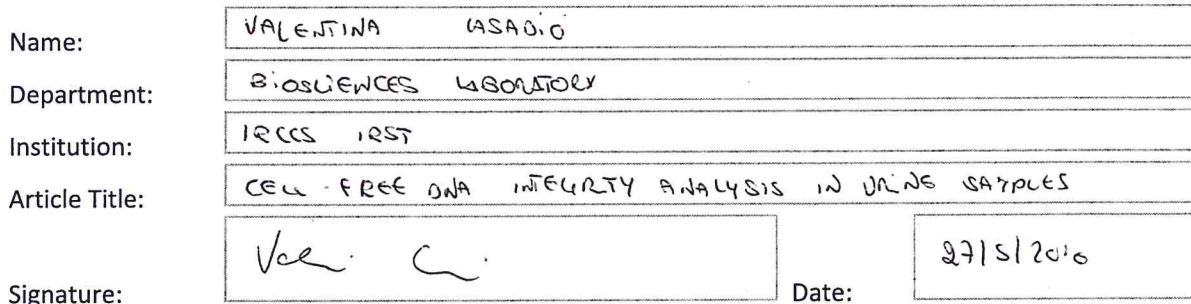 Name: VALENTINA CASADIO
Department: BIOSCIENCES LABORATORY
Institution: IRCCS IRST
Article Title: CELL-FREE DNA INTEGRITY ANALYSIS IN URINE SAMPLES
Signature: Date: